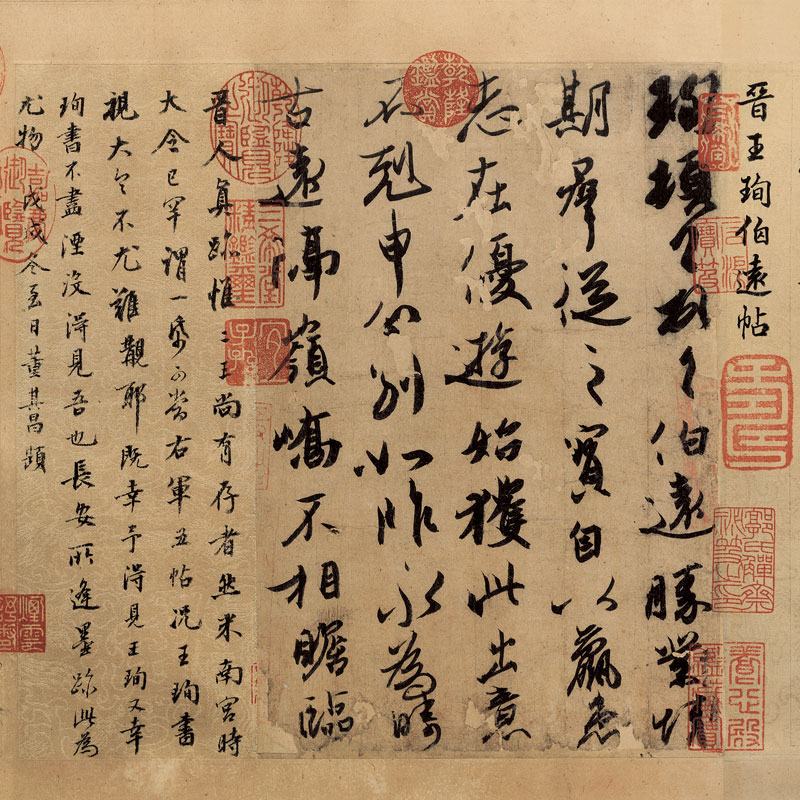 晉王珣伯遠帖
珣頓首頓首伯遠勝業情
期羣從之寶自以羸患
志在優遊始獲此出意
不剋申分別如昨永為疇
古遠隔嶺嶠不相瞻臨
晉人真跡惟二王尚有存者然米南宮時
大令已罕謂一紙可當右軍五帖況王珣書
視大令不尤難覯耶既幸予得見王珣又幸
珣書不盡湮沒得見吾也長安所逢墨跡此為
尤物戊戌冬至日董其昌題
乾隆鑑賞
乾隆御覽之寶
三希堂精鑑璽
宜子孫
養心殿鑑藏寶